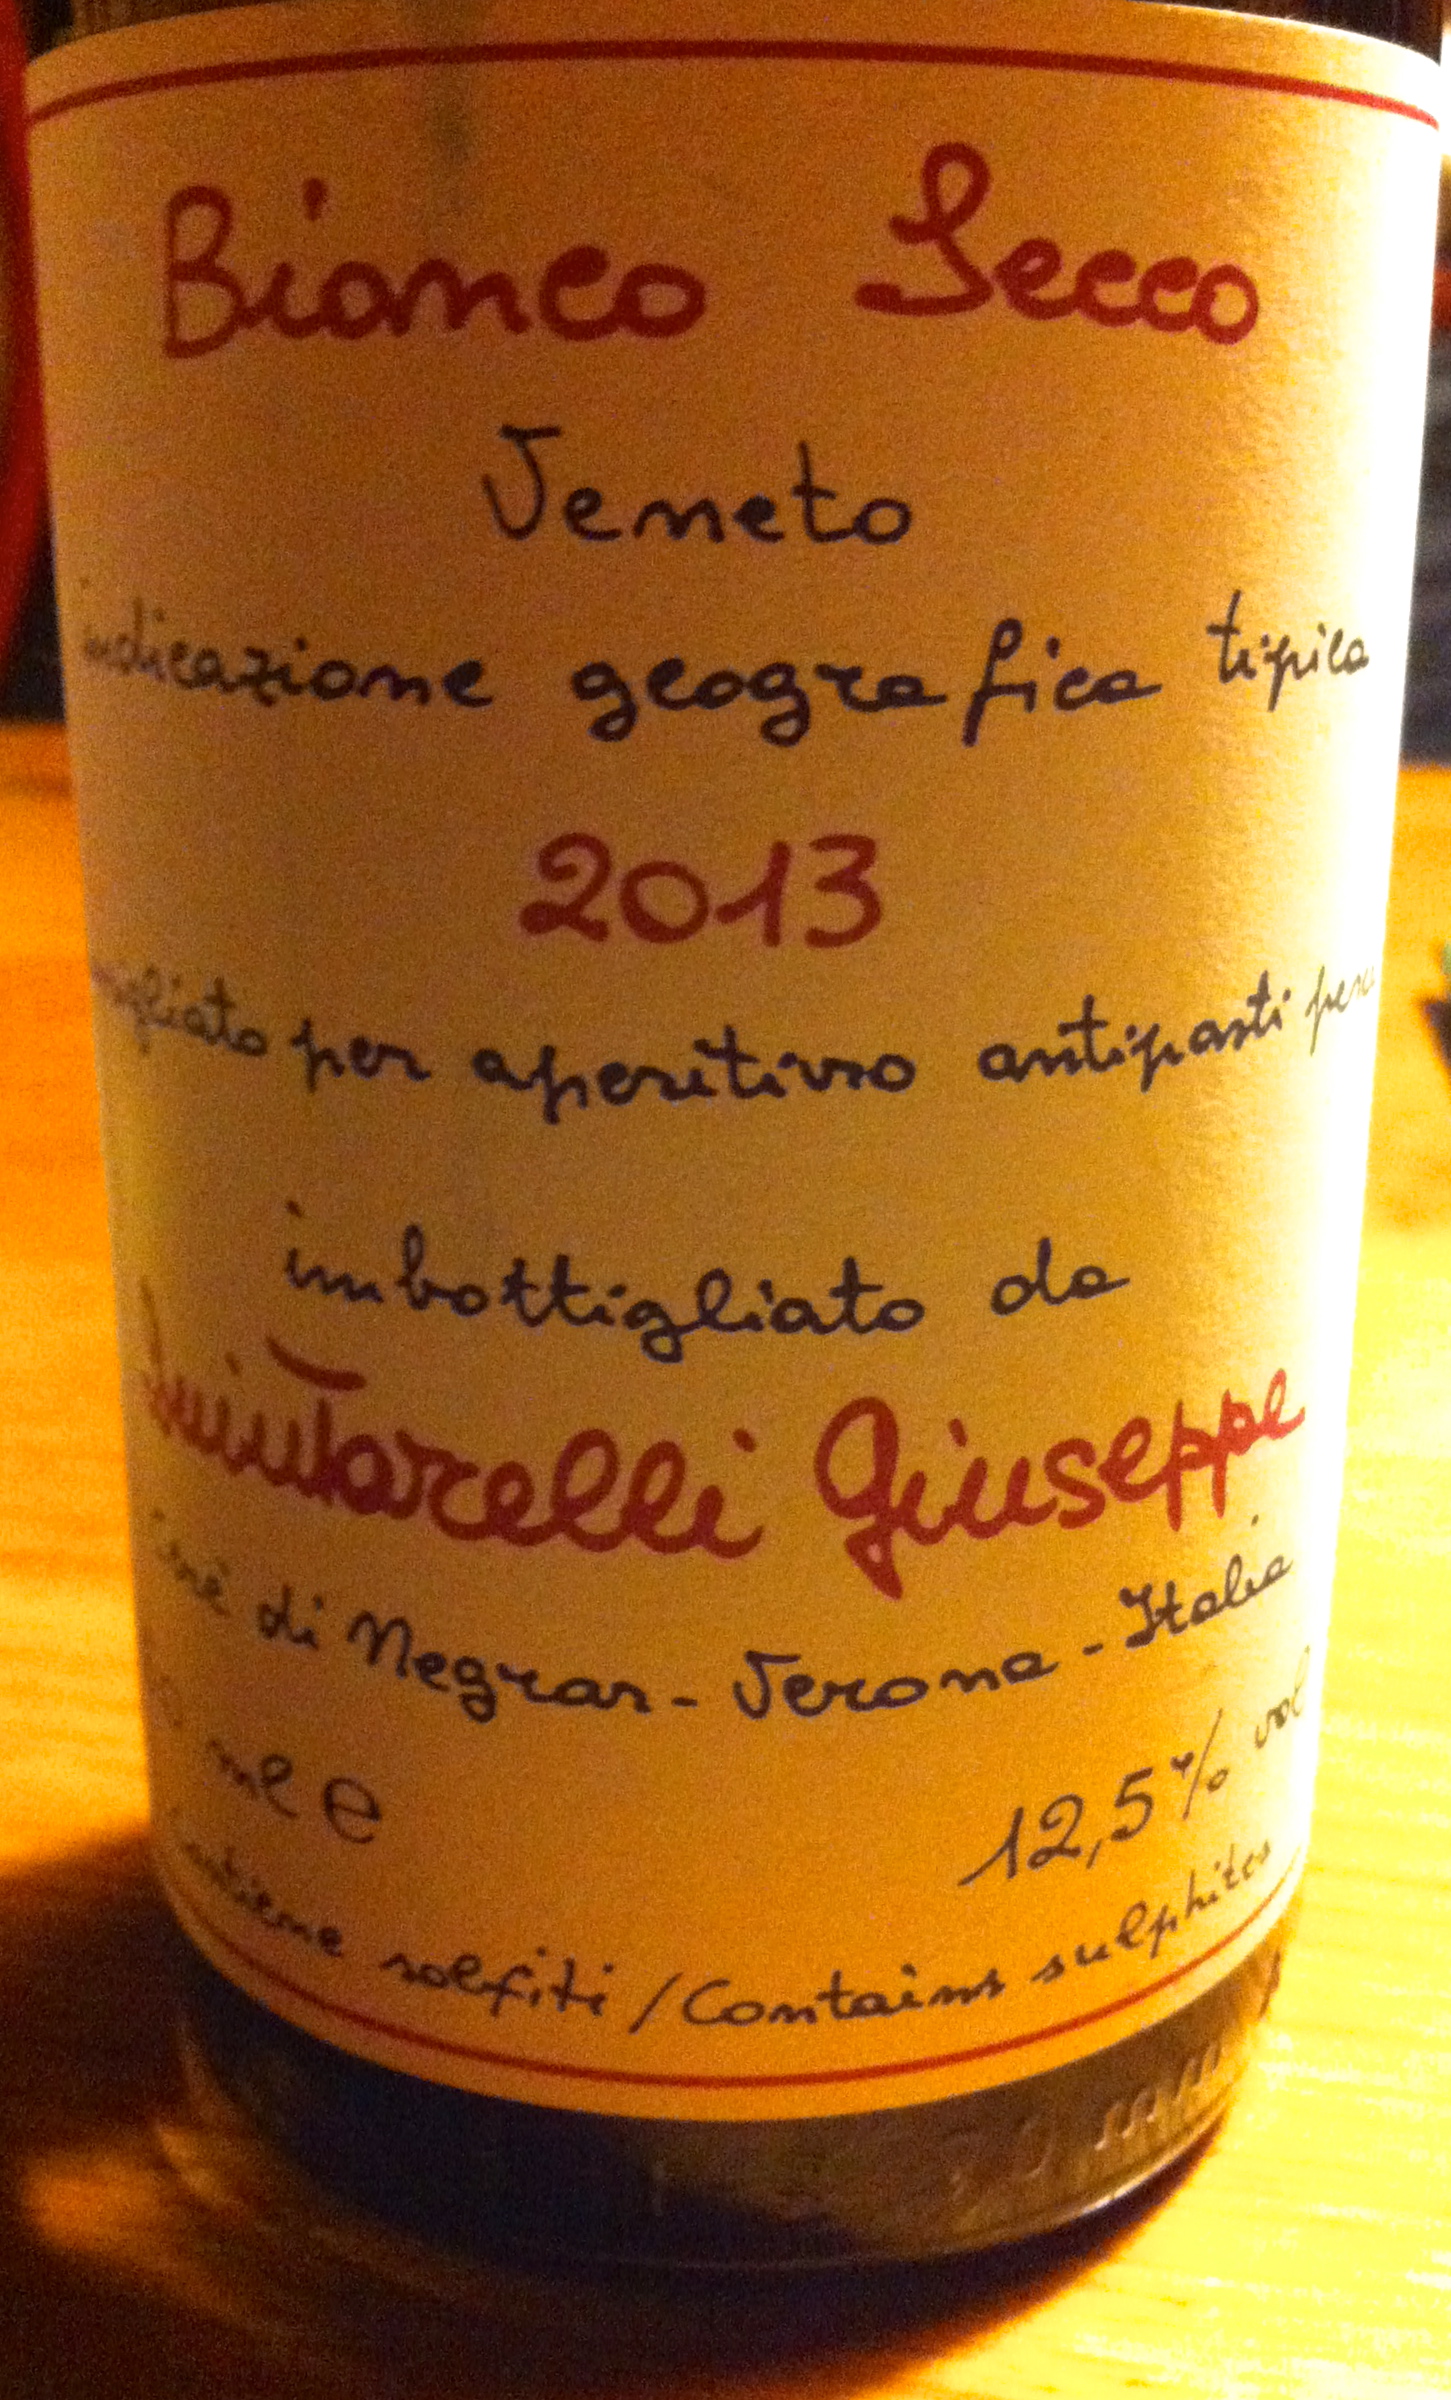 Bianco Secco
Veneto
indicazione geografica tipica
2013
per aperitivo antipasti
imbottigliato da
Quintarelli Giuseppe
di Negrar - Verona - Italia
ml e 12,5% vol
Contiene solfiti / Contains sulphites